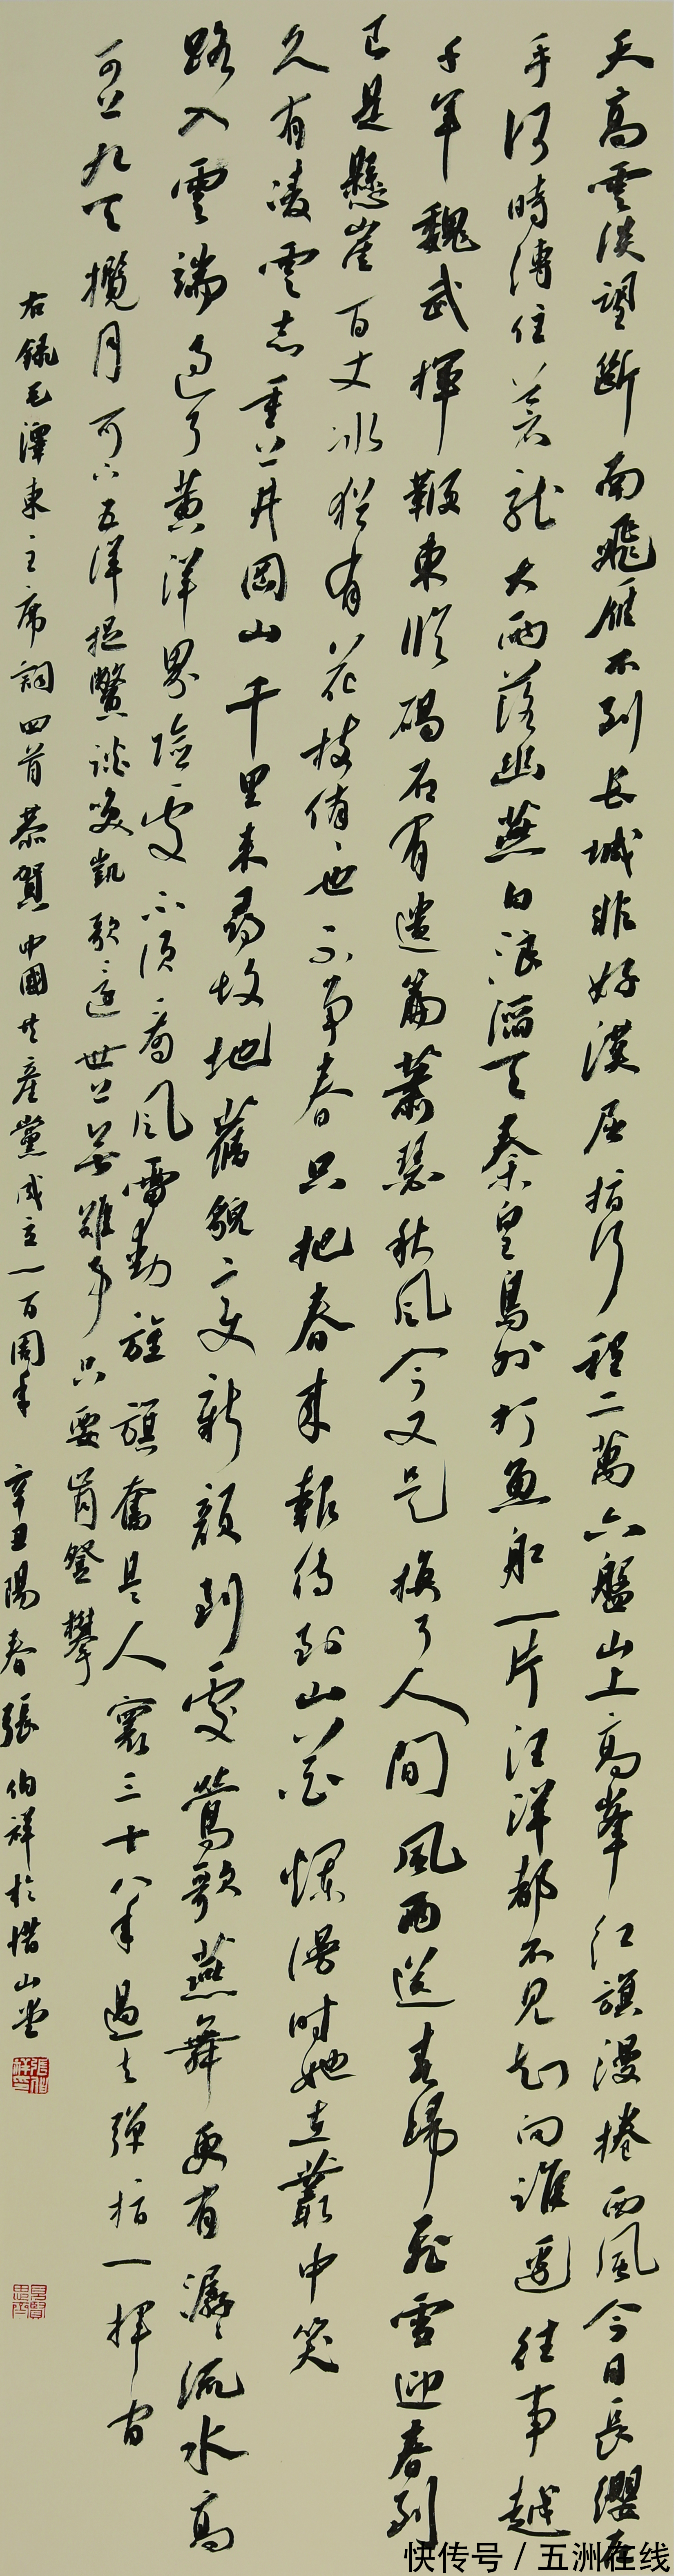 天高雲淡望斷南飛雁不到長城非好漢屈指行程二萬六盤山上高峯紅旗漫捲西風今日長纓在
手何時縛住蒼龍大雨落幽燕白浪滔天秦皇島外打魚船一片汪洋都不見知向誰邊往事越
千年魏武揮鞭東臨碣石有遺篇蕭瑟秋風今又是換了人間風雨送春歸飛雪迎春到
已是懸崖百丈冰猶有花枝俏俏也不爭春只把春來報待到山花爛漫時她在叢中笑
久有凌雲志重上井岡山千里來尋故地舊貌變新顏到處鶯歌燕舞更有潺潺流水高
路入雲端過了黃洋界險處不須看風雷動旌旗奮是人寰三十八年過去彈指一揮間
可上九天攬月可下五洋捉鱉談笑凱歌還世上無難事只要肯登攀
右錄毛澤東主席詞四首恭賀中國共產黨成立一百周年 辛丑陽春張伯祥於惜山堂
快传号 / 五洲在线